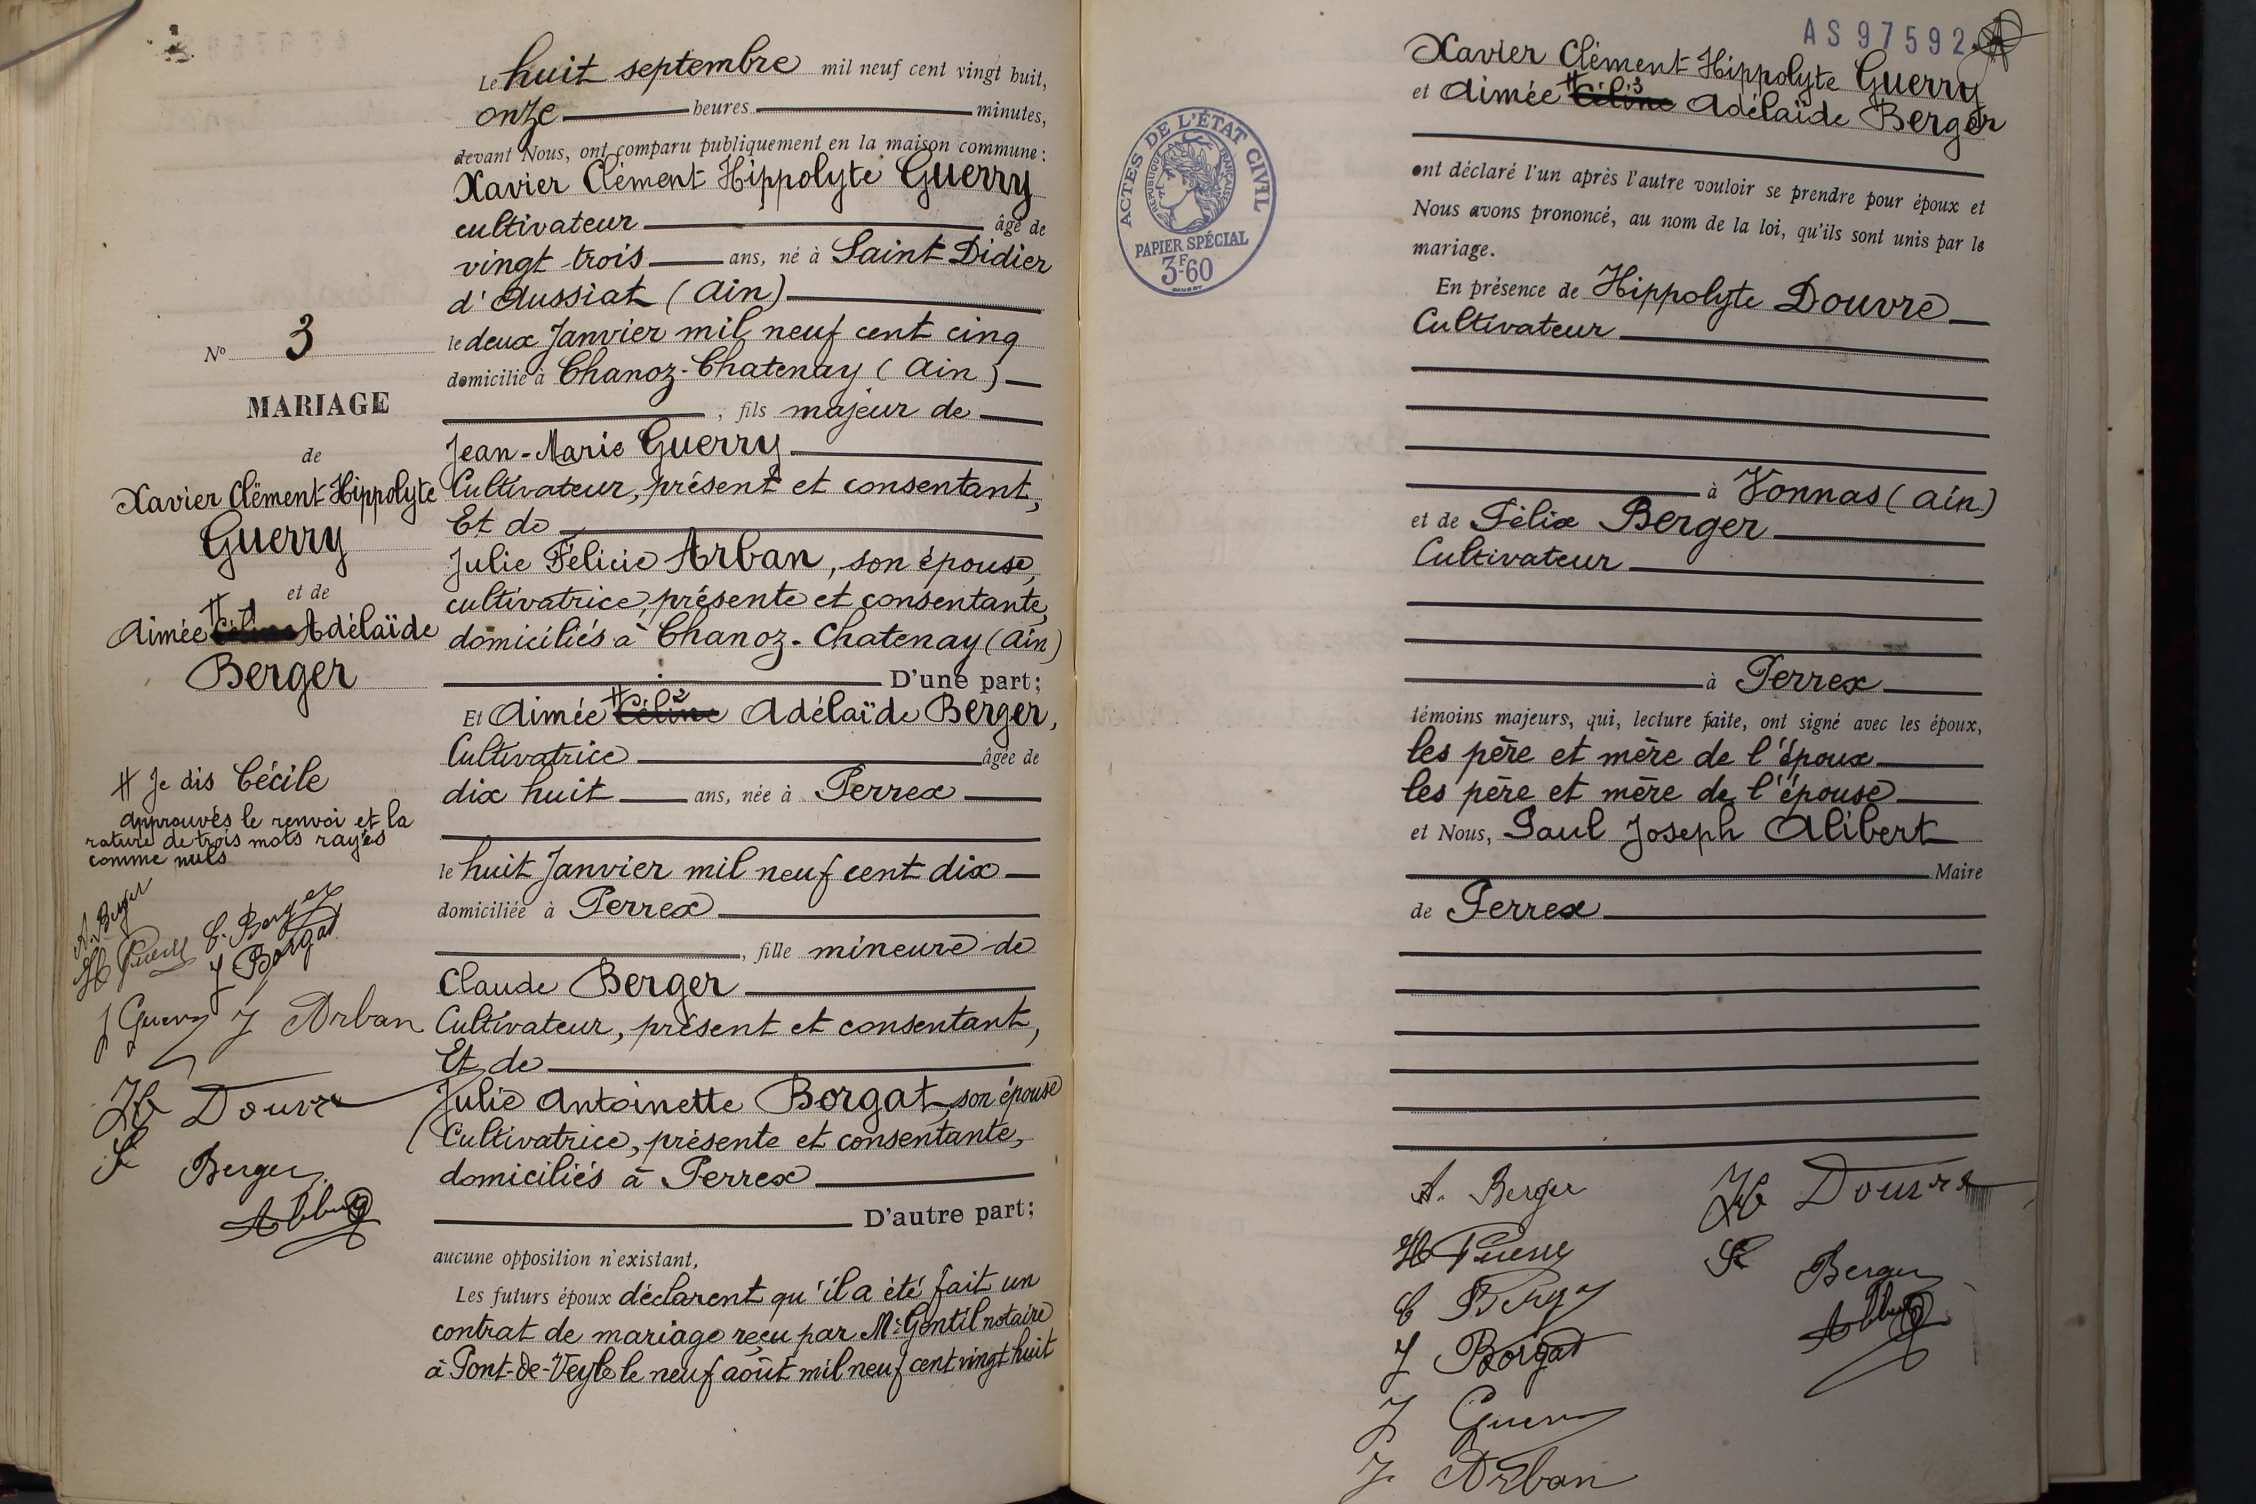 Le huit septembre mil neuf cent vingt huit,
onze heures minutes,
devant Nous, ont comparu publiquement en la maison commune :
Xavier Clément Hippolyte Guerry
cultivateur âgé de
vingt trois ans, né à Saint Didier
d'Aussiat (Ain)
le deux Janvier mil neuf cent cinq
domicilié à Chanoz-Chatenay (Ain)
, fils majeur de
Jean-Marie Guerry
Cultivateur, présent et consentant,
Et de
Julie Félicie Arban, son épouse,
cultivatrice, présente et consentante,
domiciliés à Chanoz-Chatenay (Ain)
D'une part ;
Et Aimée # Céline 2 Adélaïde Berger,
Cultivatrice âgée de
dix huit ans, née à Perrex
le huit Janvier mil neuf cent dix
domiciliée à Perrex
, fille mineure de
Claude Berger
Cultivateur, présent et consentant,
Et de
Julie Antoinette Borgat, son épouse
Cultivatrice, présente et consentante,
domiciliés à Perrex
D'autre part ;
aucune opposition n'existant,
Les futurs époux déclarent qu'il a été fait un
contrat de mariage reçu par Me Gentil notaire
à Pont-de-Veyle le neuf août mil neuf cent vingt huit
No 3
MARIAGE
de
Xavier Clément Hippolyte
Guerry
et de
Aimée # Céline 1 Adélaïde
Berger
# Je dis Cécile
approuvés le renvoi et la
rature de trois mots rayés
comme nuls
A. Berger
H Guerry C. Berger
J Borgat
J Guerry J Arban
H Douvre
F Berger
Alibert
AS 97592
Xavier Clément Hippolyte Guerry
et Aimée # Céline 3 Adélaïde Berger
ont déclaré l'un après l'autre vouloir se prendre pour époux et
Nous avons prononcé, au nom de la loi, qu'ils sont unis par le
mariage.
En présence de Hippolyte Douvre
Cultivateur
à Vonnas (Ain)
et de Félix Berger
Cultivateur
à Perrex
témoins majeurs, qui, lecture faite, ont signé avec les époux,
les père et mère de l'époux
les père et mère de l'épouse
et Nous, Paul Joseph Alibert
Maire
de Perrex
A. Berger H Douvre
H Guerry F Berger
C Berger Alibert
J Borgat
J Guerry
J. Arban
ACTES DE L'ÉTAT CIVIL
RÉPUBLIQUE FRANÇAISE
PAPIER SPÉCIAL
3F60